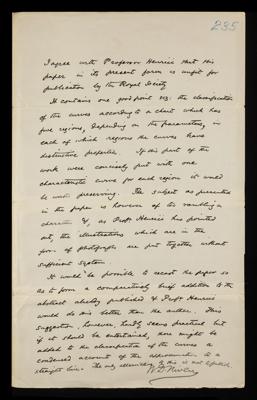 235
I agree with Professor Henrici that this
paper in its present form is unfit for
publication by the Royal Society
It contains one good point viz: the classification
of the curves according to a chart which has
five regions, depending on the parameters, in
each of which regions the curves have
distinctive properties. If this part of the
work were concisely put with one
characteristic curve for each region it would
be worth preserving. The subject as presented
in the paper is however of too rambling a
character &, as Profr Henrici has pointed
out, the illustrations which are in the
form of photographs are put together without
sufficient system.
It would be possible to recast the paper so
as to form a comparatively brief addition to the
abstract already published & Profr Henrici
would do this better than the author. This
suggestion, however, hardly seems practical but
if it should be entertained, there might be
added to the classification of the curves a
condensed account of the approximation to a
straight line. The only this is not